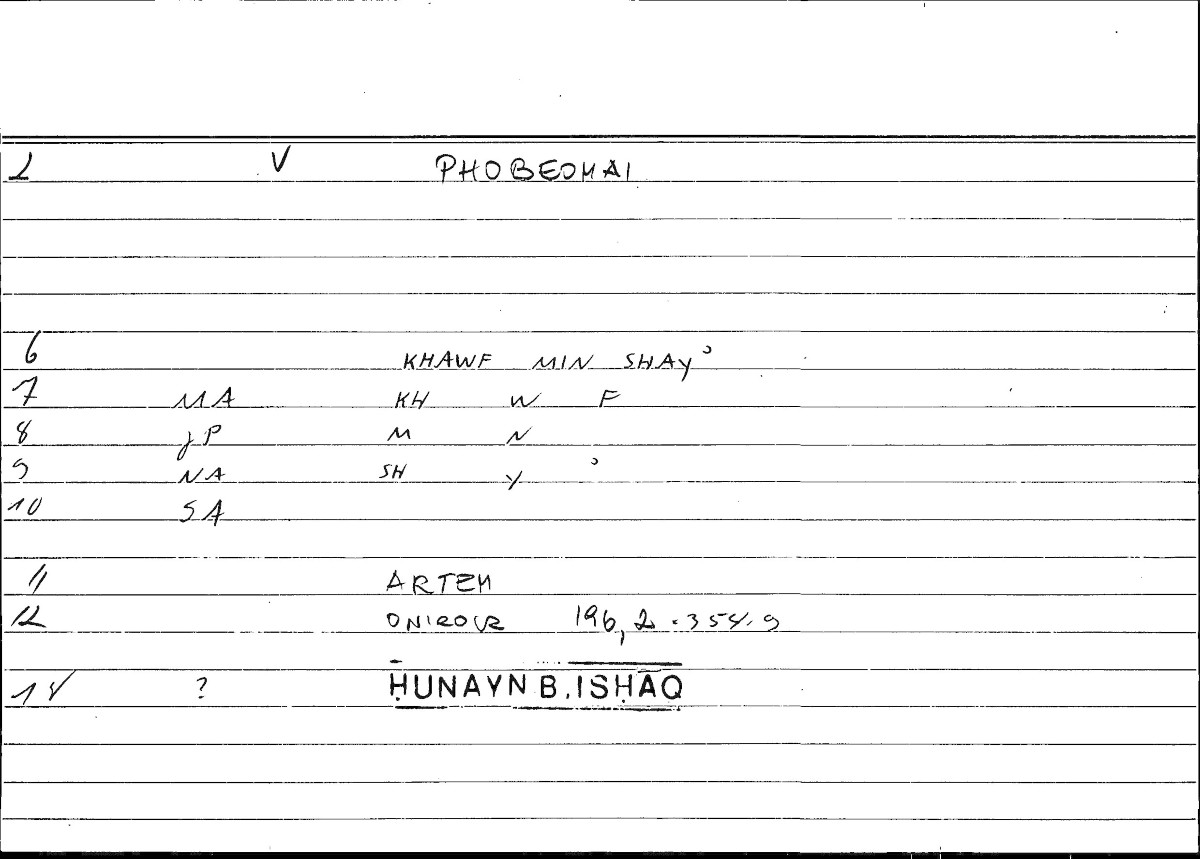 2 V PHOBEOMAI
6 KHAWF MIN SHAYʾ
7 MA KH W F
8 JP M N
9 NA SH Y ʾ
10 SA
11 ARTEM
12 ONIROCR 196,2 · 354.9
14 ? ḤUNAYN B. ISḤĀQ